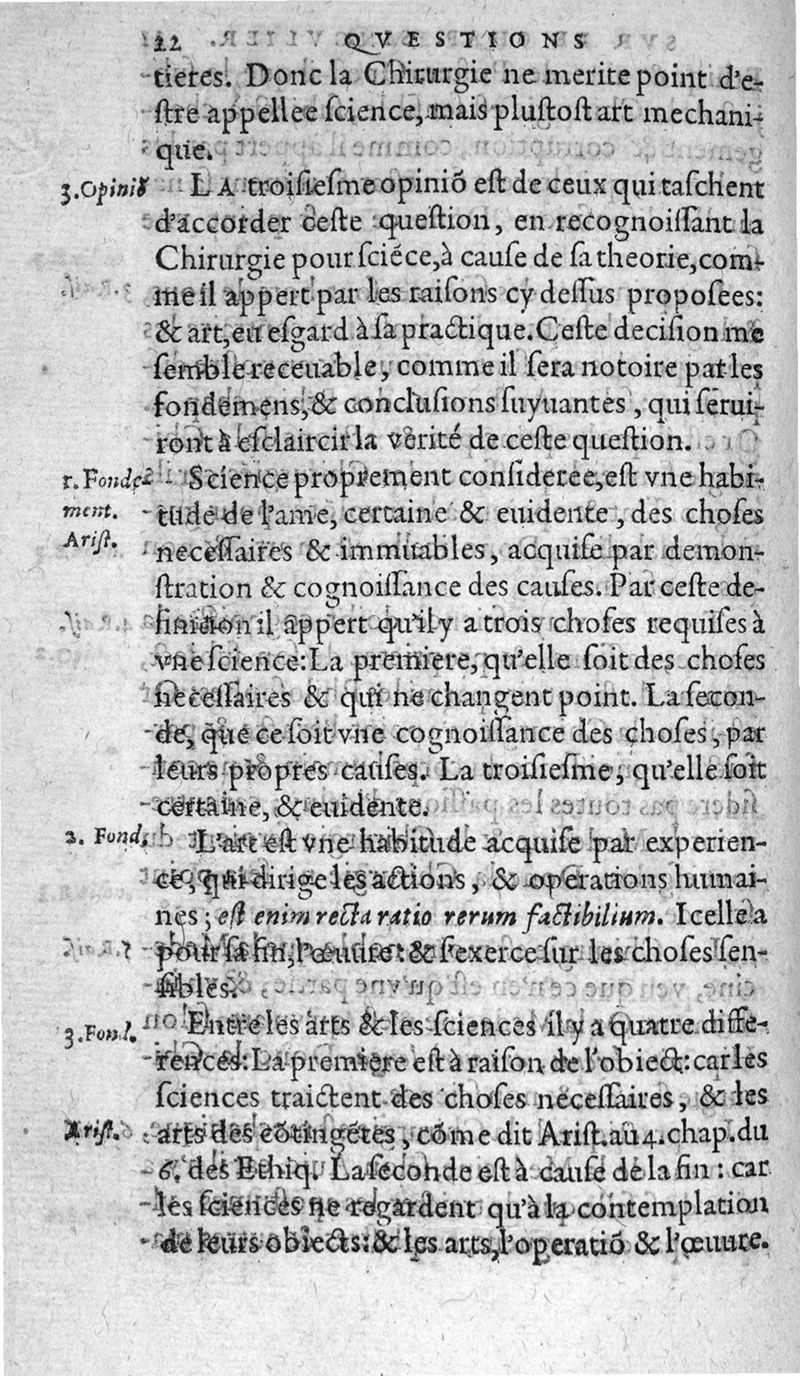 22 QVESTIONS
tieres. Donc la Chirurgie ne merite point d'e-
ſtre appellee ſcience, mais pluſtoſt art mechani-
que.
3. Opiniõ LA troiſieſme opiniõ eſt de ceux qui taſchent
d'accorder ceſte queſtion, en recognoiſſant la
Chirurgie pour ſciẽce, à cauſe de ſa theorie, com-
me il appert par les raiſons cy deſſus propoſees:
& art, eu eſgard à ſa practique. Ceſte deciſion me
ſemble receuable, comme il ſera notoire par les
fondemens, & concluſions ſuyuantes, qui ſerui-
ront à eſclaircir la verité de ceſte queſtion.
1. Fondẽ- Science proprement conſideree, eſt vne habi-
ment. tude de l'ame, certaine & euidente, des choſes
Ariſt. neceſſaires & immuables, acquiſe par demon-
ſtration & cognoiſſance des cauſes. Par ceſte de-
finition il appert qu'il y a trois choſes requiſes à
vne ſcience: La premiere, qu'elle ſoit des choſes
neceſſaires & qui ne changent point. La ſecon-
de, que ce ſoit vne cognoiſſance des choſes, par
leurs propres cauſes. La troiſieſme, qu'elle ſoit
certaine, & euidente.
2. Fond. L'art eſt vne habitude acquiſe par experien-
ce, qui dirige les actions, & operations humai-
nes; eſt enim recta ratio rerum factibilium. Icelle a
pour ſa fin, l'œuure: & ſ'exerce ſur les choſes ſen-
ſibles.
3. Fond. Entre les arts & les ſciences il y a quatre diffe-
rences: La premiere eſt à raiſon de l'obiect: car les
ſciences traictent des choſes neceſſaires, & les
Ariſt. arts des cõtingẽtes, cõme dit Ariſt. au 4. chap. du
6. des Ethiq. La ſeconde eſt à cauſe de la fin: car
les ſciences ne regardent qu'à la contemplation
de leurs obiects: & les arts, l'operatiõ & l'œuure.